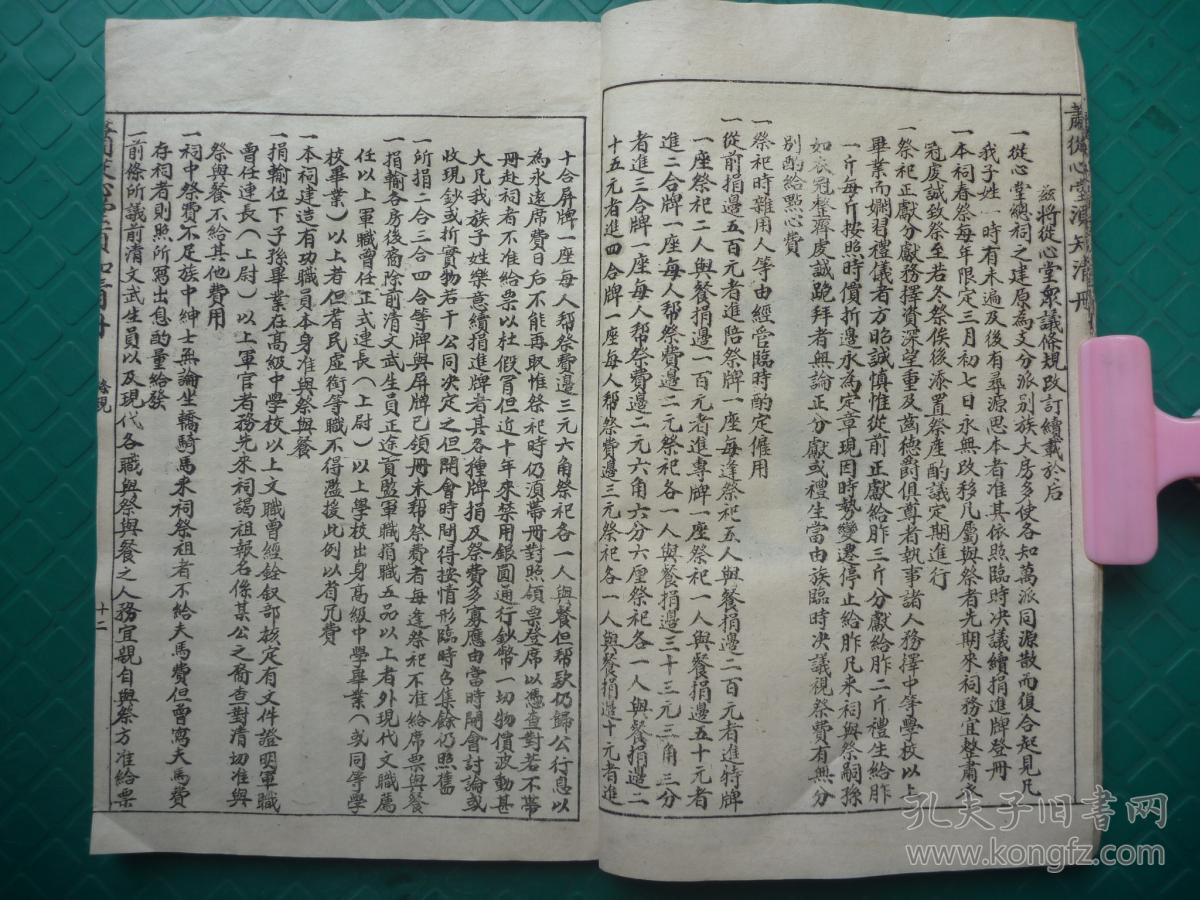 蕭從心堂須知清冊
茲將從心堂眾議條規改訂續載於后
一從心堂總祠之建原為支分派別族大房多使各知萬派同源散而復合起見凡
我子姓一時有未遍及後有尋源思本者准其依照臨時決議續捐進牌登冊
一本祠春祭每年限定三月初七日永無改移凡屬與祭者先期來祠務宜整肅衣
冠虔誠致祭至若冬祭俟後添置祭產酌議定期進行
一祭祀正獻分獻務擇資深望重及齒德爵俱尊者執事諸人務擇中等學校以上
畢業而嫻習禮儀者方昭誠慎惟從前正獻給胙三斤分獻給胙二斤禮生給胙
一斤每斤按照時價折邊永為定章現因時勢變遷停止給胙凡來祠與祭嗣孫
如衣冠整齊虔誠跪拜者無論正分獻或禮生當由族臨時決議視祭費有無分
別酌給點心費
一祭祀時雜用人等由經管臨時酌定僱用
一從前捐邊五百元者進陪祭牌一座每逢祭祀五人與餐捐邊二百元者進特牌
一座祭祀二人與餐捐邊一百元者進專牌一座祭祀一人與餐捐邊五十元者
進二合牌一座每人帮祭費邊二元祭祀各一人與餐捐邊三十三元三角三分
者進三合牌一座每人帮祭費邊二元六角六分六厘祭祀各一人與餐捐邊二
十五元者進四合牌一座每人帮祭費邊三元祭祀各一人與餐捐邊十元者進
十合屏牌一座每人帮祭費邊三元六角祭祀各一人與餐但帮款仍歸公行息以
為永遠席費日后不能再取惟祭祀時仍須帶冊對照領票登席以憑查對若不帶
冊赴祠者不准給票以杜假冒但近十年來禁用銀圓通行鈔幣一切物價波動甚
大凡我族子姓樂意續捐進牌者其各種牌捐及祭費多寡應由當時開會討論或
收現鈔或折實物若干公同決定之但開會時間得按情形臨時召集餘仍照舊
一所捐二合三合四合等牌與屏牌已領冊未帮祭費者每逢祭祀不准給席票與餐
一捐輸各房後裔除前清文武生員正途貢監軍職捐職五品以上者外現代文職薦
任以上軍職曾任正式連長(上尉)以上學校出身高級中學畢業(或同等學
校畢業)以上者但耆民虛銜等職不得濫援此例以省冗費
一本祠建造有功職員本身准與祭與餐
一捐輸位下子孫畢業在高級中學校以上文職曾經銓叙部核定有文件證明軍職
曾任連長(上尉)以上軍官者務先來祠謁祖報名係某公之裔查對清切准與
祭與餐不給其他費用
一祠中祭費不足族中紳士無論坐轎騎馬來祠祭祖者不給夫馬費但曾寫夫馬費
存祠者則照所寫出息酌量給發
一前條所議前清文武生員以及現代各職與祭與餐之人務宜親自與祭方准給票
條規
十二
孔夫子旧书网
www.kongfz.com